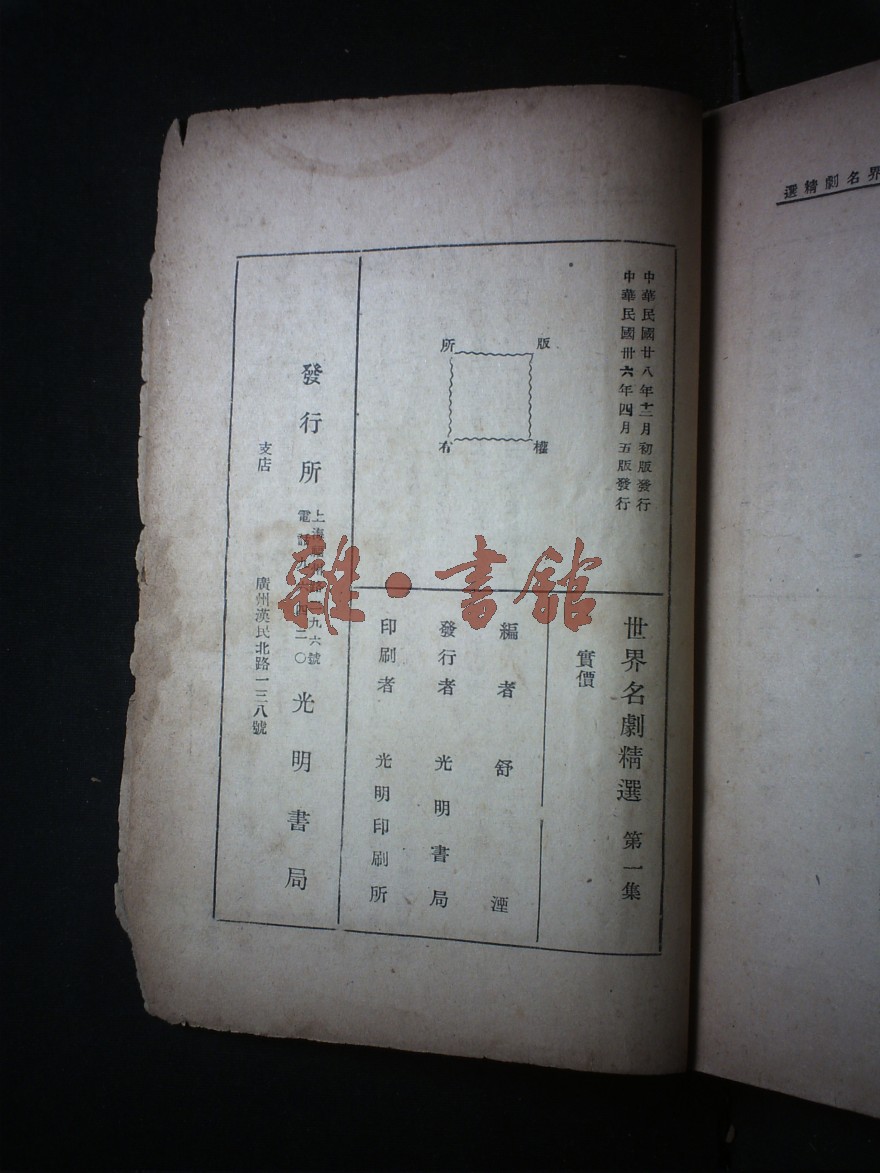 中華民國廿八年十二月初版發行
中華民國卅六年四月五版發行
版權所有
世界名劇精選 第一集
實價
編者 舒湮
發行者 光明書局
印刷者 光明印刷所
發行所
上海
九六號
電話九
四二〇
光明書局
支店 廣州漢民北路一三八號
界名劇精選
雜·書館